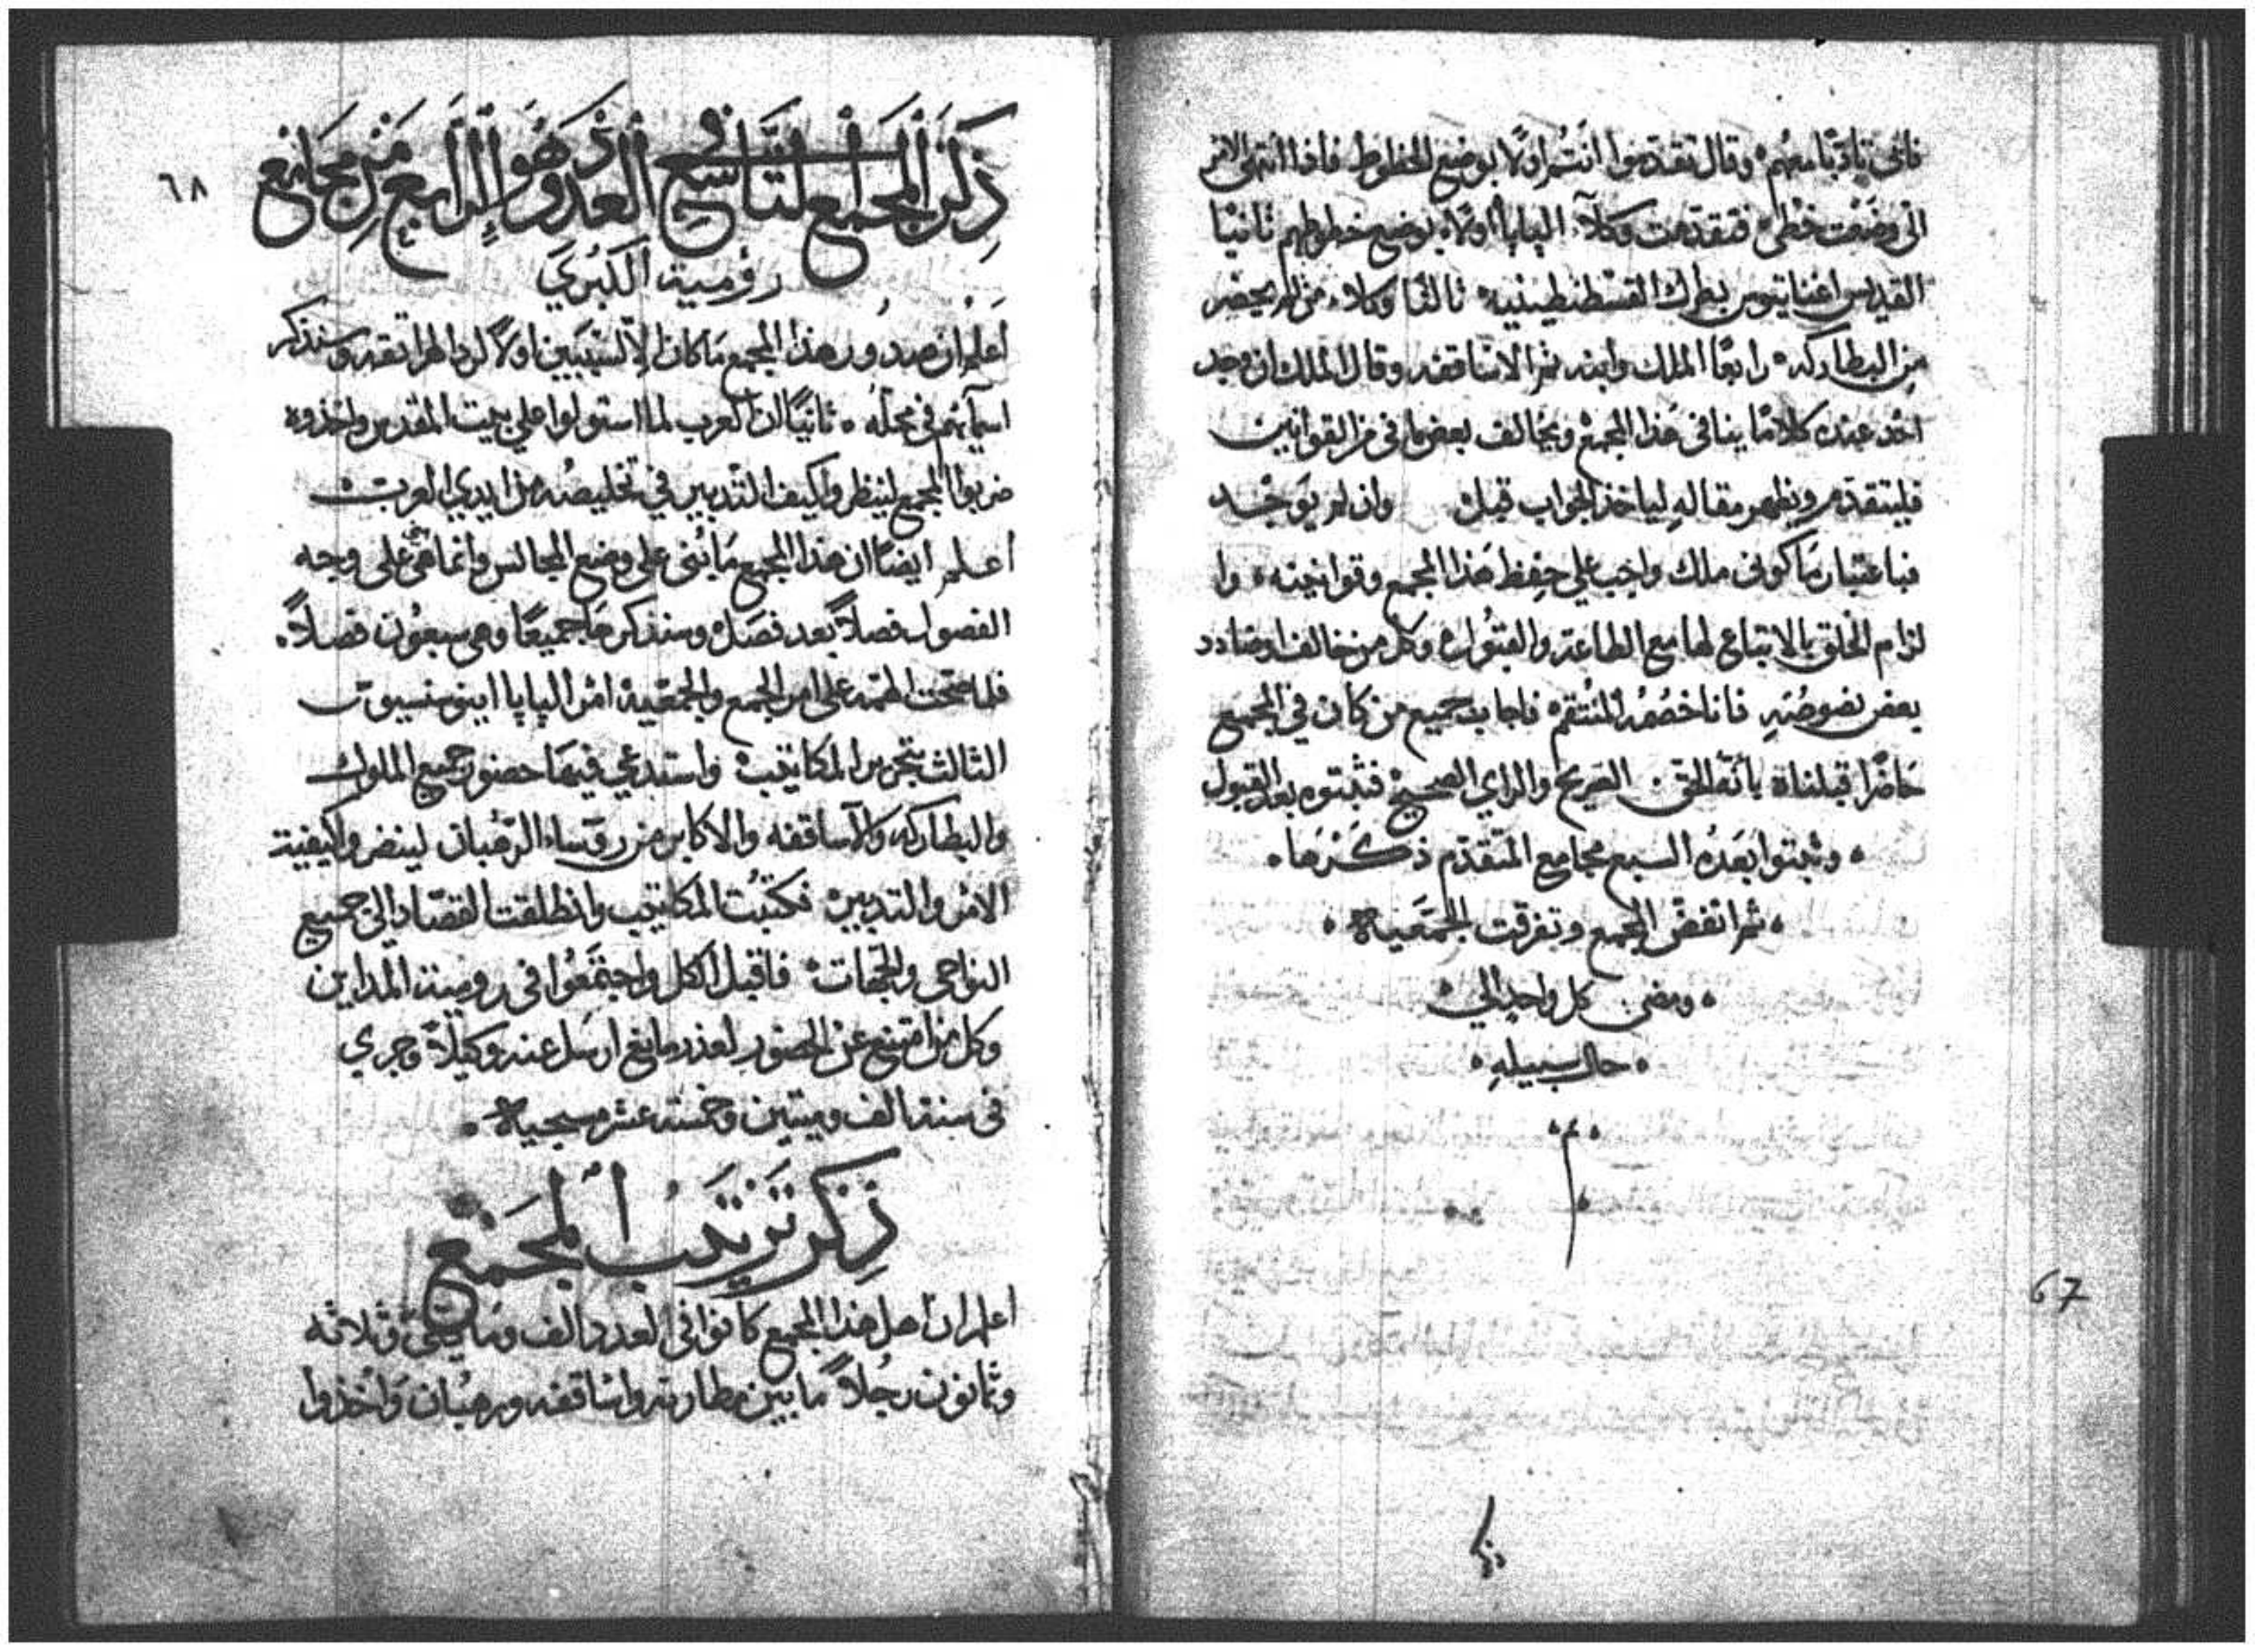 فابى تادبا معهم وقال تقدموا انتم اولا بوضع الخطوط فاذا انتهى الامر
الى وضعت خطى فتقدمت وكلآء الپاپا اولا بوضع خطوطهم ثانيا
القديس اغناتيوس بطرك القسطنطينيه ثالثا وكلاء من لم يحضر
من البطاركه رابعًا الملك وابنه ثم الاساقفه وقال الملك ان وجد
احد عنده كلامًا ينافى هذا المجمع ويخالف بعض ما فى من القوانين
فليتقدم ويظهر مقاله لياخذ الجواب قبل وان لم يوجد
فباعتبار ما كونى ملك واجب على حفظ هذا المجمع وقوانينه وا
لزام الخلق بالاتباع لها مع الطاعة والقبول وكل من خالف او ضادد
بعض نصوصه فانا خصمه المنتقم فاجابه جميع من كان في المجمع
حاضرًا قبلناه بانه الحق الصريح والراي الصحيح فثبتوه بعد القبول
وثبتوا بعده السبع مجامع المتقدم ذكرها
ثم انفض المجمع وتفرقت الجمعية
ومضى كل واحد الى
حال سبيله
67
ذكر
٦٨
ذكر المجمع التاسع في العدد وهو الرابع من مجامع
رومية الكبري
اعلم ان صدور هذا المجمع ما كان الا لسببين اولًا لرد الهراتقه وسنذكر
اسمآئهم فى محله ثانيًا لان العرب لما استولوا على بيت المقدس واخذوه
ضربوا المجمع لينظروا كيف التدبير في تخليصه من ايدي العرب
اعلم ايضًا ان هذا المجمع ما بُنى على وضع المجالس وانما هى على وجه
الفصول فصلًا بعد فصل وسنذكرها جميعًا وهى سبعون فصلًا
فلما صحت الهمه على امر الجمع والجمعية امر الپاپا اينوسنسيوس
الثالث بتحرير المكاتيب واستدعي فيها حضور جميع الملوك
والبطاركه والاساقفه والاكابر من روساء الرهبان لينضروا كيفية
الامر والتدبير فكتبت المكاتيب وانطلقت القصاد الى جميع
النواحى والجهات فاقبل الكل واجتمعوا فى رومية المداين
وكل من امتنع عن الحضور لعذر مانع ارسل عنه وكيلًا وجري
فى سنة الف وميتين وخمسة عشر مسيحية
ذكر ترتيب المجمع
اعلم ان اهل هذا المجمع كانوا فى العدد الف ومايتى وثلاثه
وثمانون رجلًا ما بين مطارنه واساقفه ورهبان واخذوا